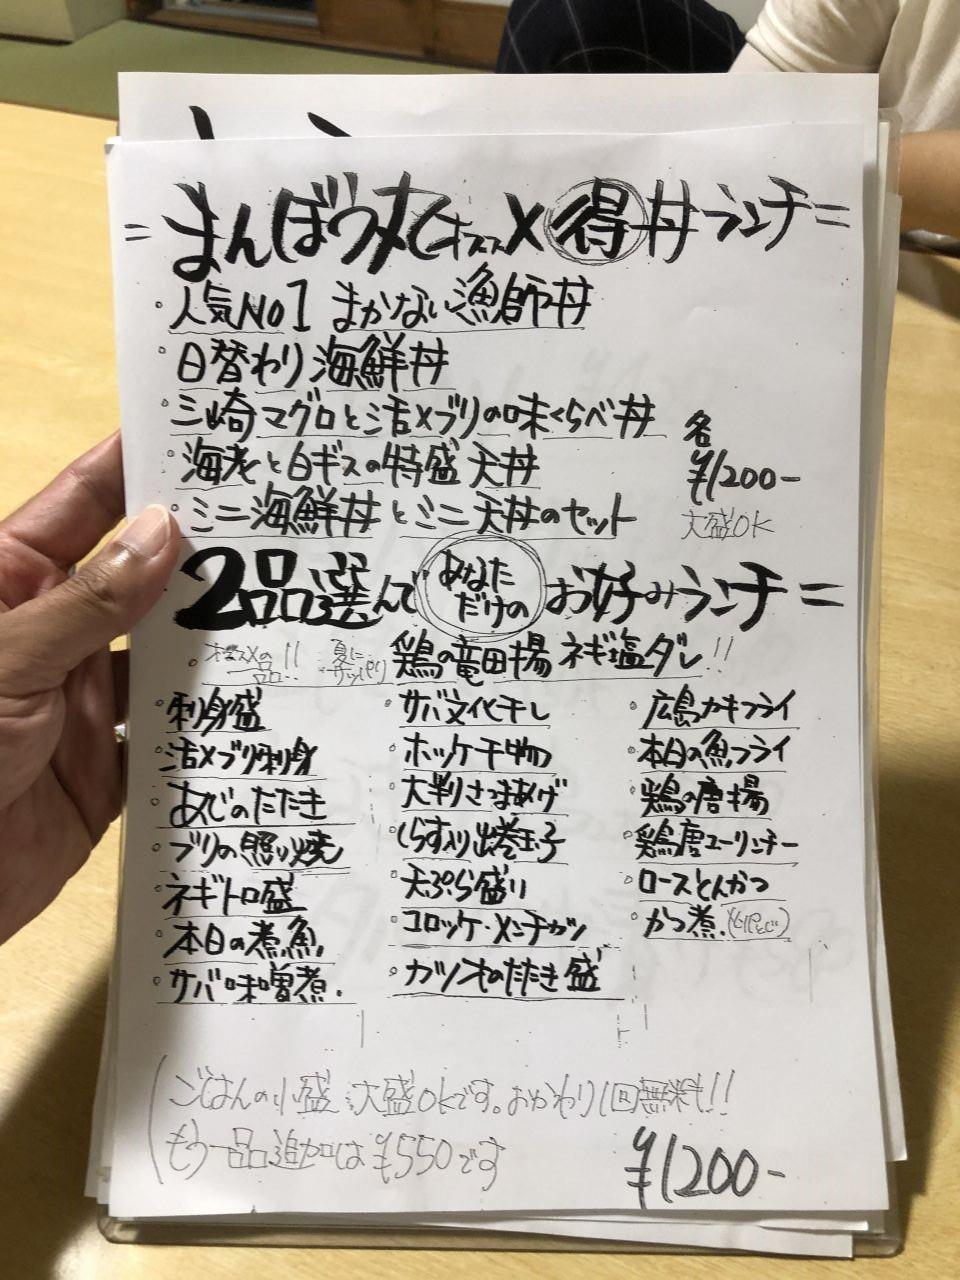 =まんぼう丸オススメ得丼ランチ=
・人気NO1 まかない漁師丼
・日替わり海鮮丼
・三崎マグロと活〆ブリの味くらべ丼
・海老と白ギスの特盛天丼
・ミニ海鮮丼とミニ天丼のセット
各
¥1200-
大盛OK
2品選んであなただけのお好みランチ=
・オススメの一品!! 夏にサッパリ 鶏の竜田揚 ネギ塩ダレ!!
・刺身盛
・活〆ブリ刺身
・あじのたたき
・ブリの照り焼
・ネギトロ盛
・本日の煮魚
・サバ味噌煮.
・サバ文化干し
・ホッケ干物
・大判さつまあげ
・しらす入り出巻玉子
・天ぷら盛り
・コロッケ・メンチカツ
・カツオのたたき盛
・広島カキフライ
・本日の魚フライ
・鶏の唐揚
・鶏唐ユーリンチー
・ロースとんかつ
・かつ煮.
ごはんの小盛 大盛OKです。おかわり1回無料!!
もう一品追加は¥550です
¥1200-